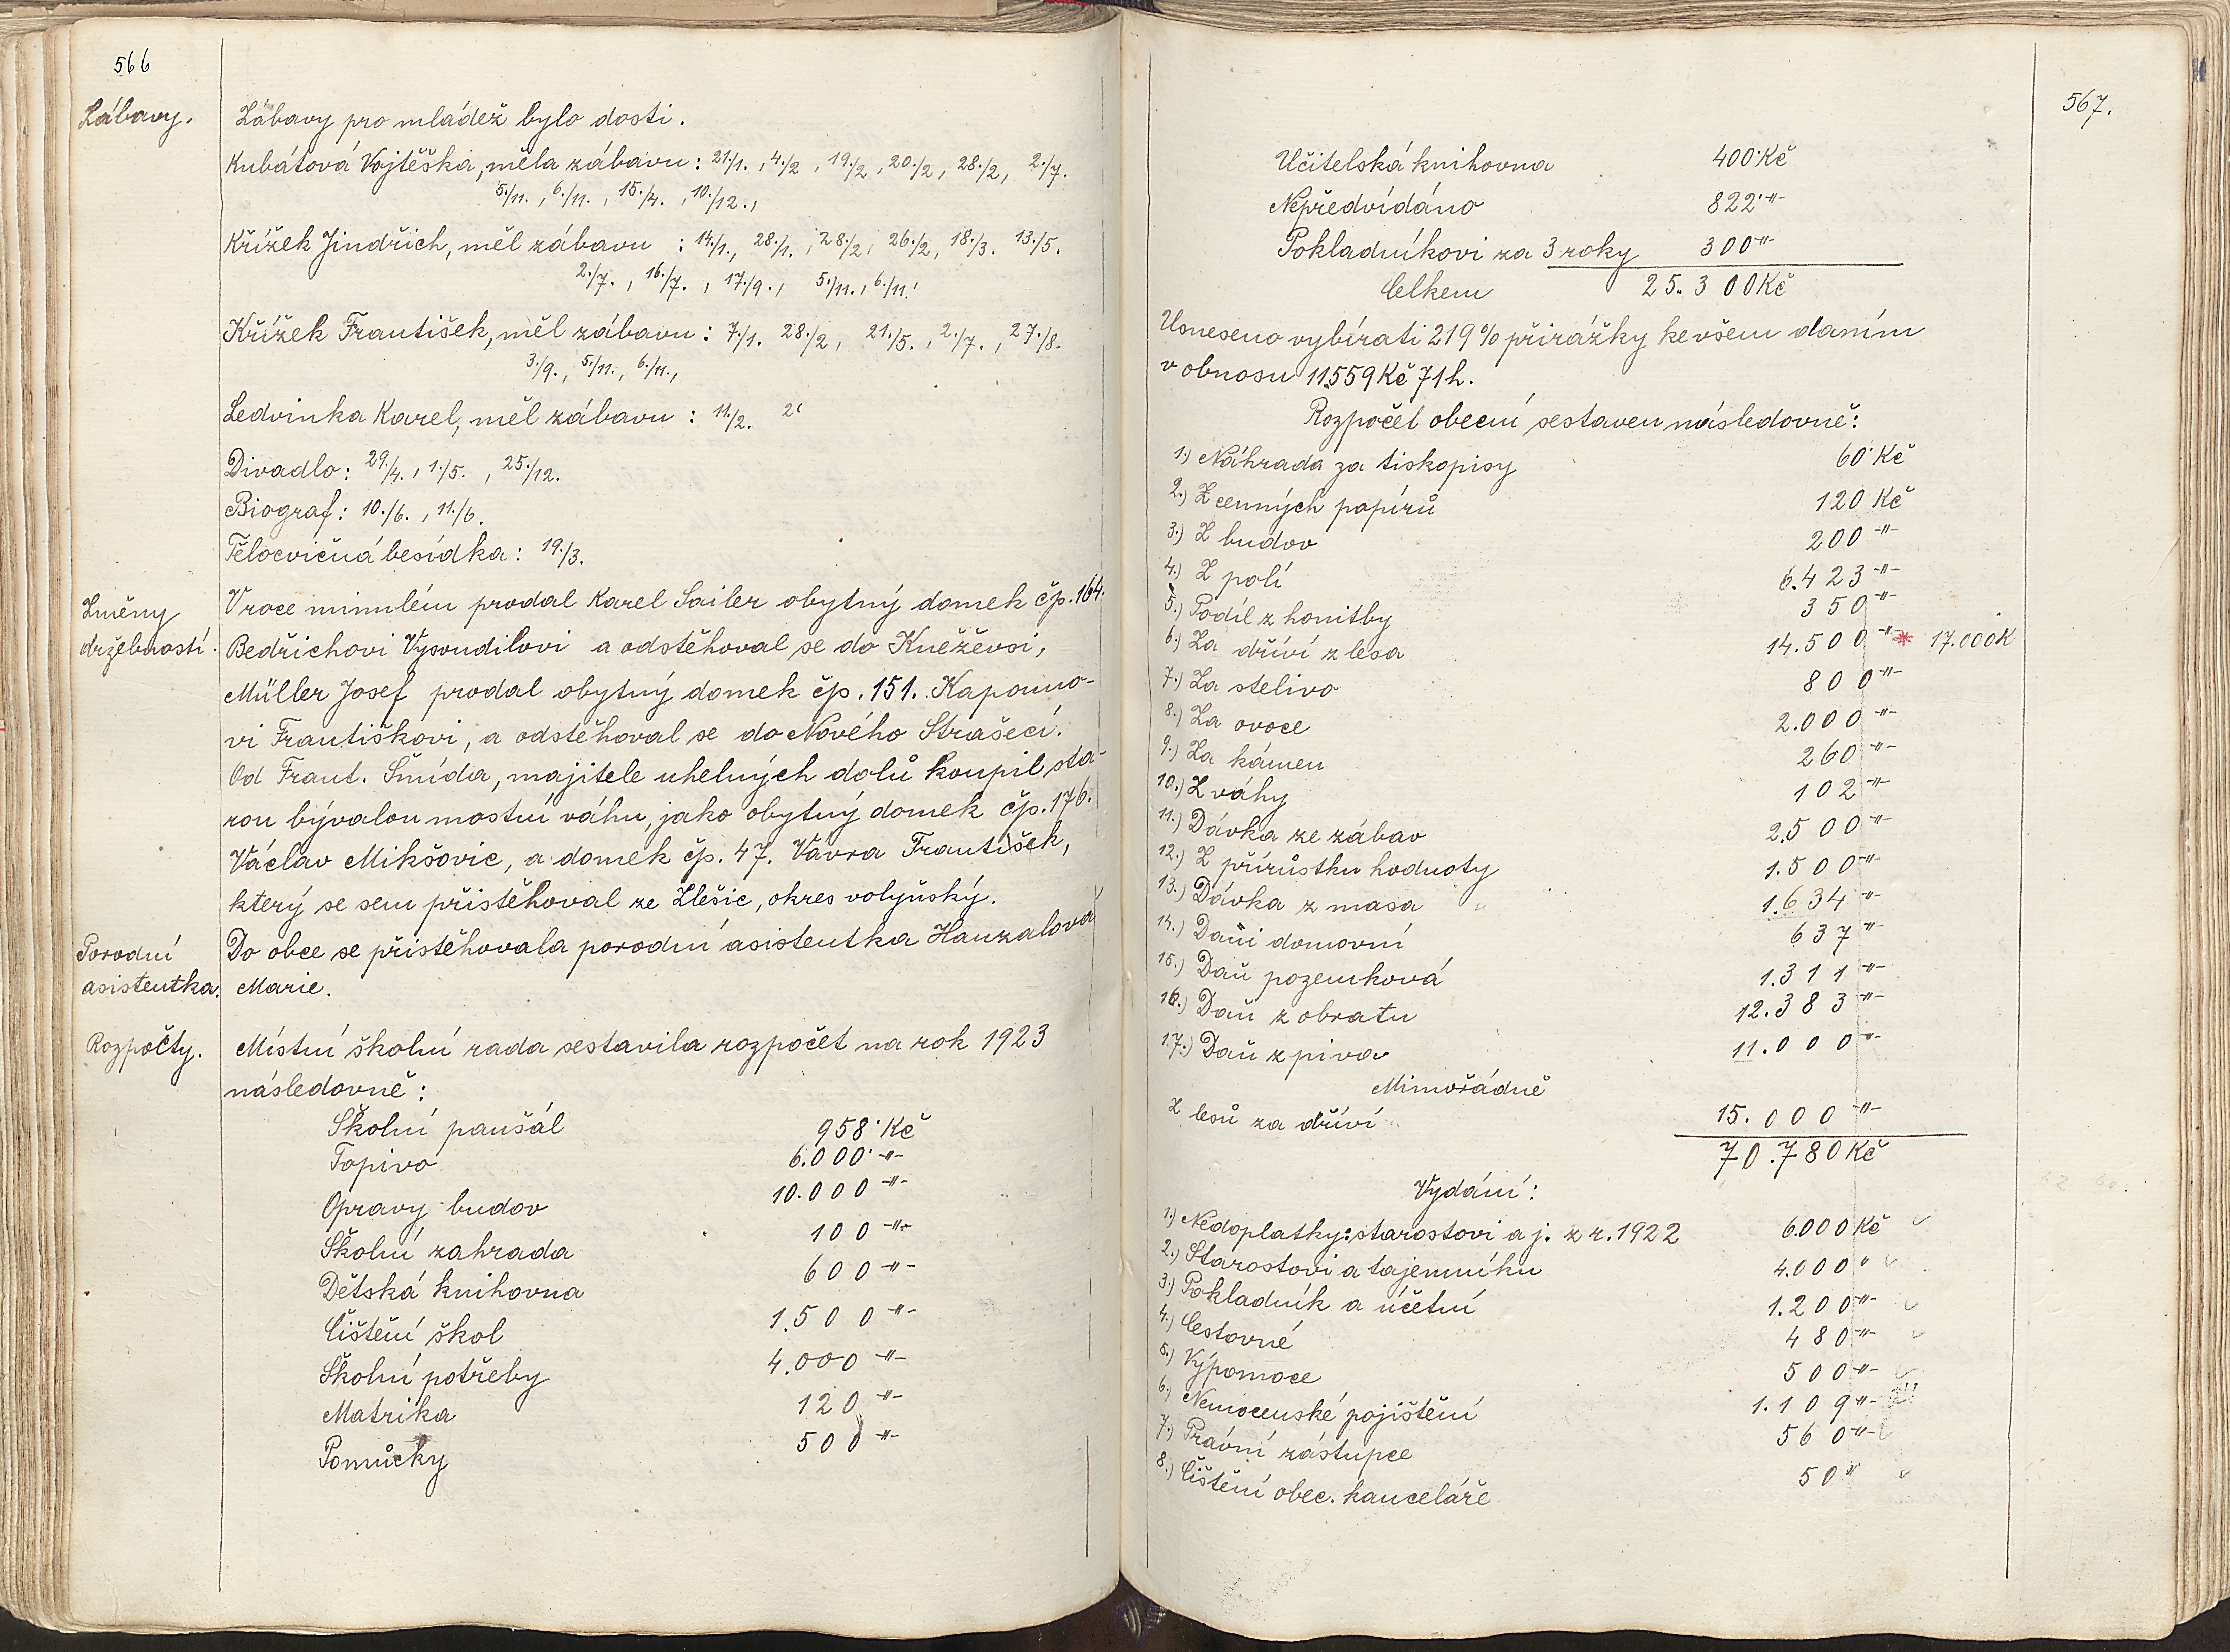 566
Zábavy.
Zábavy pro mládež bylo dosti.
Kubátová Vojtěška, měla zábavu: 21./1., 4./2, 19./2, 20./2, 28./2, 2./7.
5./11., 6./11., 15./4., 10./12.,
Křížek Jindřich, měl zábavu: 14./1., 28./1., 28./2, 26./2, 18./3. 13./5.
2./7., 16./7., 17./9., 5./11., 6./11.
Křížek František, měl zábavu: 7./1. 28./2, 21./5., 2./7., 27./8.
3./9., 5./11., 6./11.,
Ledvinka Karel, měl zábavu: 11./2.
Divadlo: 29./4., 1./5., 25./12.
Biograf: 10./6., 11./6.
Tělocvičná besídka: 19./3.
Změny
držebnosti.
V roce minulém prodal Karel Sailer obytný domek čp. 164.
Bedřichovi Vysoudilovi a odstěhoval se do Kněževsi,
Müller Josef prodal obytný domek čp. 151. Kapouno-
vi Františkovi, a odstěhoval se do Nového Strašecí.
Od Frant. Šmída, majitele uhelných dolů koupil sta-
rou bývalou mostní váhu, jako obytný domek čp. 176.
Václav Mikšovic, a domek čp. 47. Vávra František,
který se sem přistěhoval ze Zlešic, okres volyňský.
Porodní
asistentka.
Do obce se přistěhovala porodní asistentka Hanzalová
Marie.
Rozpočty.
Místní školní rada sestavila rozpočet na rok 1923
následovně:
Školní paušál 958· Kč
Topivo 6.000· -"-
Opravy budov 10.000 -"-
Školní zahrada 100 -"-
Dětská knihovna 600 -"-
Čištění škol 1.500 -"-
Školní potřeby 4.000 -"-
Matrika 120 -"-
Pomůcky 500 -"-
567.
Učitelská knihovna 400· Kč
Nepředvídáno 822· -"-
Pokladníkovi za 3 roky 300 -"-
Celkem 25.300 Kč
Usneseno vybírati 219% přirážky ke všem daním
v obnosu 11.559 Kč 71 h.
Rozpočet obecní sestaven následovně:
1.) Náhrada za tiskopisy 60· Kč
2.) Z cenných papírů 120 Kč
3.) Z budov 200 -"-
4.) Z polí 6.423 -"-
5.) Podíl z honitby 350 -"-
6.) Za dříví z lesa 14.500 -"- * 17.000 K
7.) Za stelivo 800 -"-
8.) Za ovoce 2.000 -"-
9.) Za kámen 260 -"-
10.) Z váhy 102 -"-
11.) Dávka ze zábav 2.500 -"-
12.) Z přírůstku hodnoty 1.500 -"-
13.) Dávka z masa 1.634 -"-
14.) Dani domovní 637 -"-
15.) Daň pozemková 1.311 -"-
16.) Daň z obratu 12.383 -"-
17.) Daň z piva 11.000 -"-
Mimořádně
Z lesů za dříví 15.000 -"-
70.780 Kč
Vydání:
1.) Nedoplatky: starostovi a j. z r. 1922 6.000 Kč
2.) Starostovi a tajemníku 4.000 "
3.) Pokladník a účetní 1.200 -"-
4.) Cestovné 480 -"-
5.) Výpomoce 500 -"-
6.) Nemocenské pojištění 1.109 -"-
7.) Právní zástupce 560 -"-
8.) Čištění obec. kanceláře 50 "